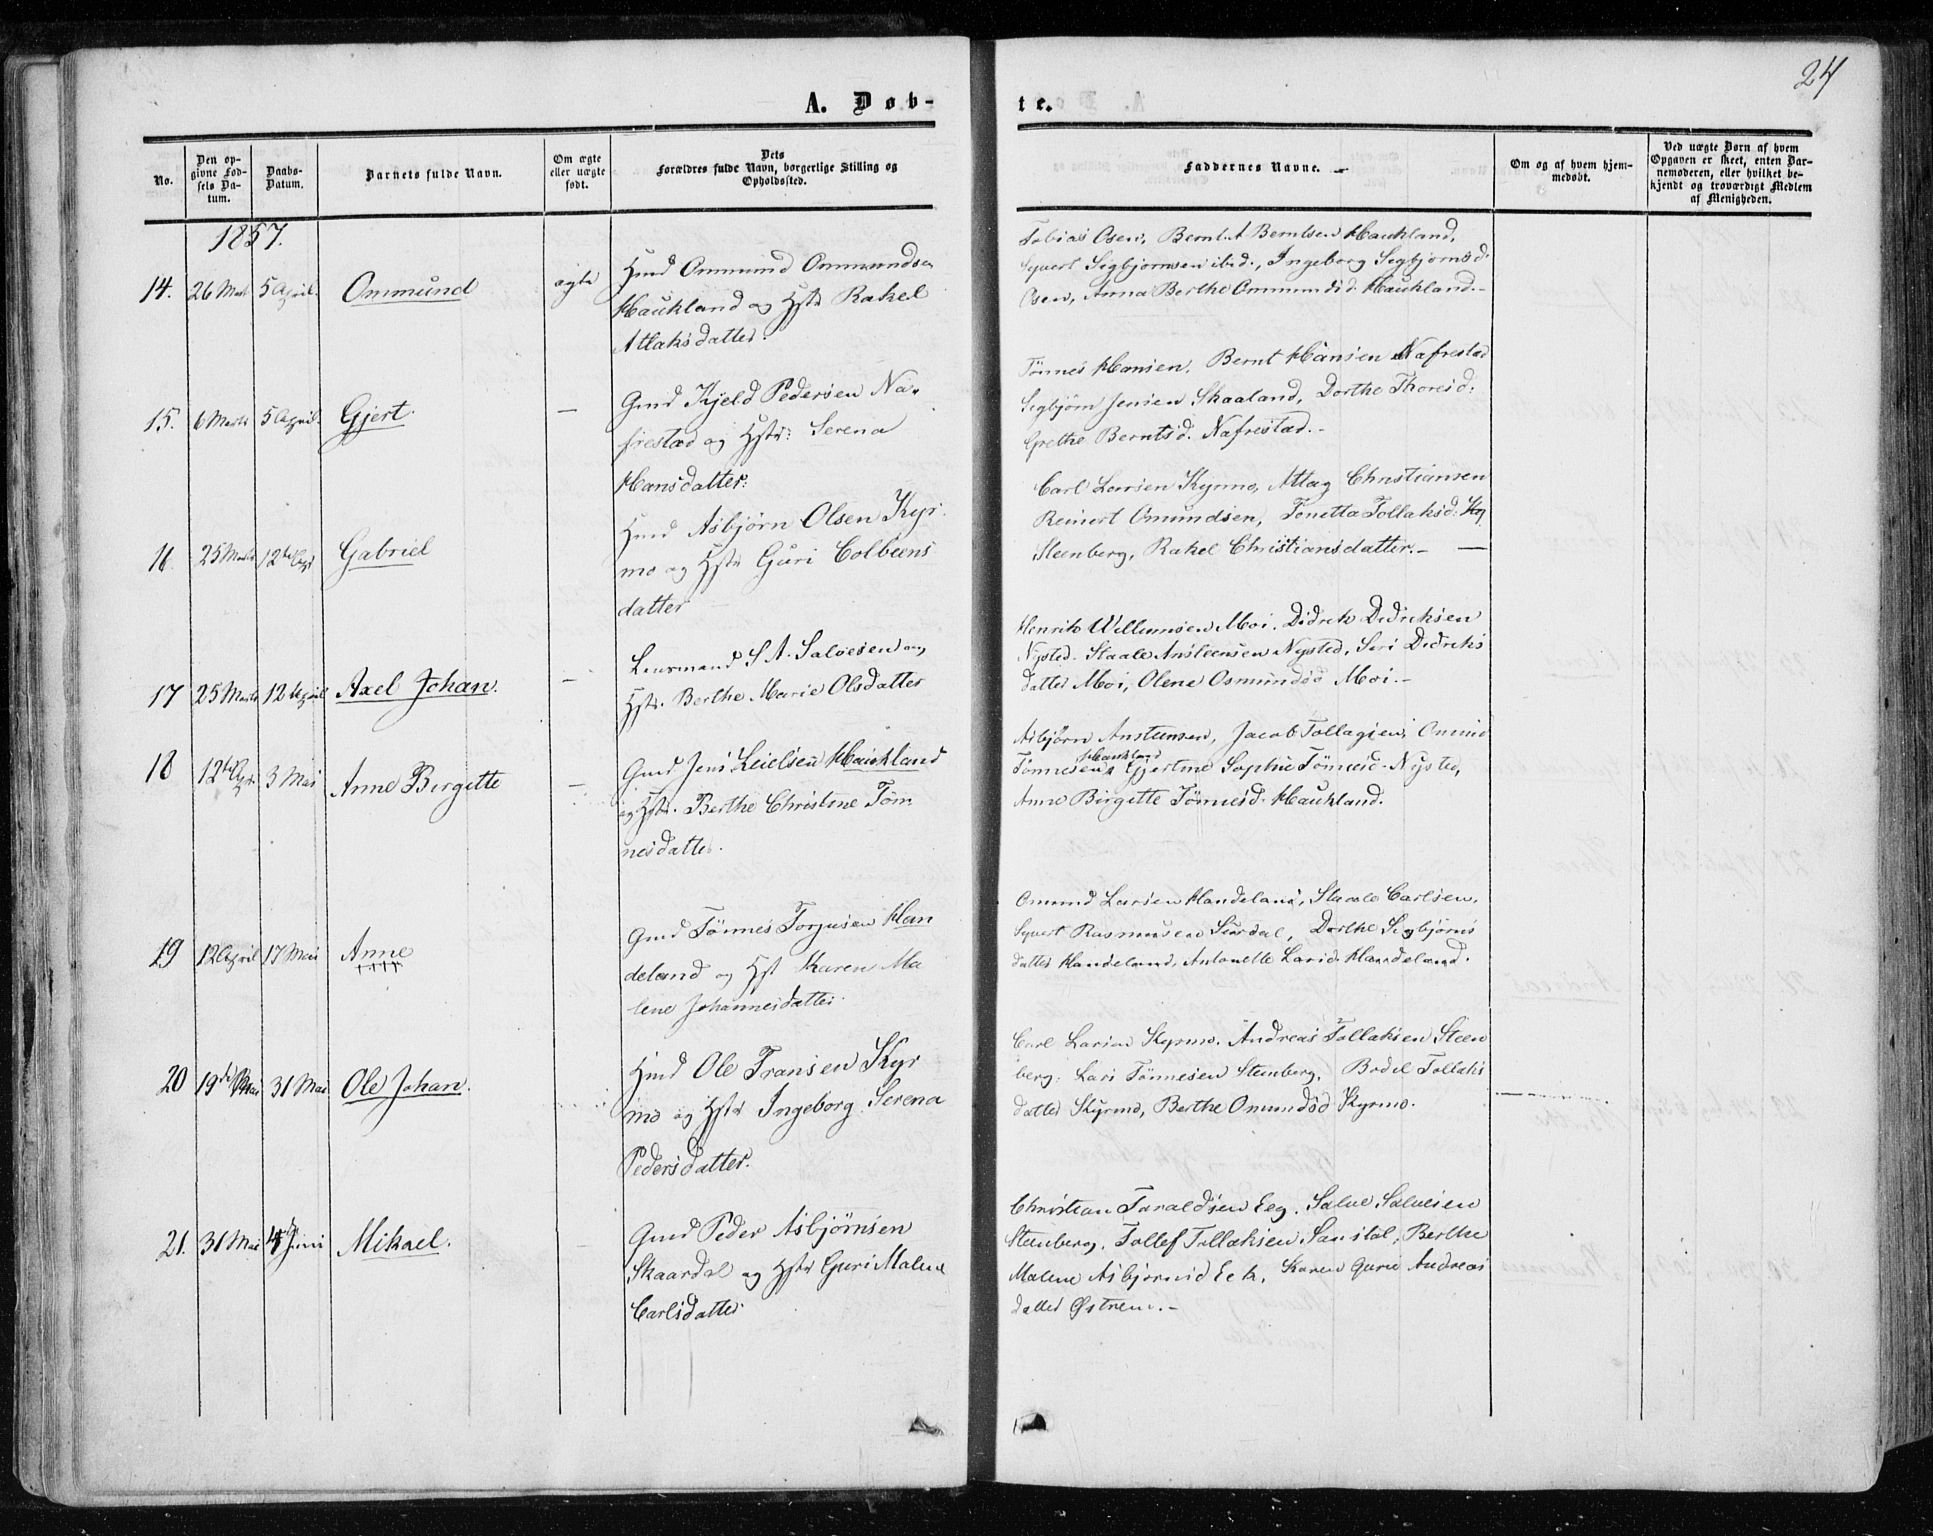 24
A. Døb-
te.
No.
Den op-
givne Fød-
sels Da-
tum.
Daabs-
Datum.
Barnets fulde Navn.
Om ægte
eller uægte
født.
Dets
Forældres fulde Navn, borgerlige Stilling og
Opholdssted.
Faddernes Navne.
Om og af hvem hjem-
medøbt.
Ved uægte Børn af hvem
Opgaven er skeet, enten Bar-
nemoderen, eller hvilket be-
kjendt og troværdigt Medlem
af Menigheden.
1857.
14. 26 Marts 5 April. Ommund ægte
Hmd Ommund Ommundsen
Haukland og Hstr Rakel
Atlaksdatter.
Tobias Osen, Bernt Berntsen Haukland,
Syvert Sigbjørnsen ibid., Ingeborg Sigbjørnsd.
Osen, Anna Berthe Ommundsd. Haukland.-
15. 6 Marts 5 April. Gjert. —
Gmd Kjeld Pedersen Na-
frestad og Hstr: Serena
Hansdatter:
Tønnes Hansen, Bernt Hansen Nafrestad
Sigbjørn Jensen Skaaland, Dorthe Thoresd:
Grethe Berntsd. Nafrestad.-
16. 25 Marts 12te Apr Gabriel
Hmd Asbjørn Olsen Kyr-
mo og Hstr Guri Colbeens
datter
Carl Larsen Kyrmo, Attag Christiansen
Reinert Omundsen, Tonetta Tollaksd:
Steenberg, Rakel Christiansdatter.- —
17 25 Marts 12 April Axel Johan. —
Lensmand S. A. Salvesen og
Hstr. Berthe Marie Olsdatter
Henrik Willumsen Moi. Didrik Didriksen
Nysted. Staale Ansteensen Nysted, Siri Didriks
datter Moi, Olene Osmundsd Moi.-
18 12te Apr 3 Mai Anne Birgitte —
Gmd Jens Leielsen Haukland
og Hstr. Berthe Christine Tøn
nesdatter.
Asbjørn Anstensen, Jacob Tollagsen, Omund
Haukland
Tønnesen, Gjertine Sophie Tønnesd. Nysted,
Anne Birgitte Tønnesd. Haukland.
19 12 April 17 Mai Anne
Gmd Tønnes Torjusen Han
deland og Hst Karen Ma
lene Johannesdatter.
Omund Larsen Handeland, Staale Carlsen,
Syvert Rasmussen Sirdal, Dorthe Sigbjørns
datter Handeland, Antonette Larsd. Handeland.
20 19de Mai 31 Mai Ole Johan.
Hmd Ole Fransen Kyr
mo og Hstr Ingeborg Serena
Pedersdatter.
Carl Larsen Kyrmo. Andreas Tollaksen Steen
berg. Lars Tønnesen Steenberg, Bodil Tollaks
datter Kyrmo, Berthe Omundsd Kyrmo.
21. 31 Mai 4 Juni Mikael.
Gmd Peder Asbjørnsen
Skaardal og Hstr Guri Malene
Carlsdatter
Christian Taraldsen Eeg. Salve Salvesen
Steenberg. Tollef Tollaksen Sanstøl, Berthe
Malene Asbjørnsd Eek, Karen Gurie Andreas
datter Østrem.-